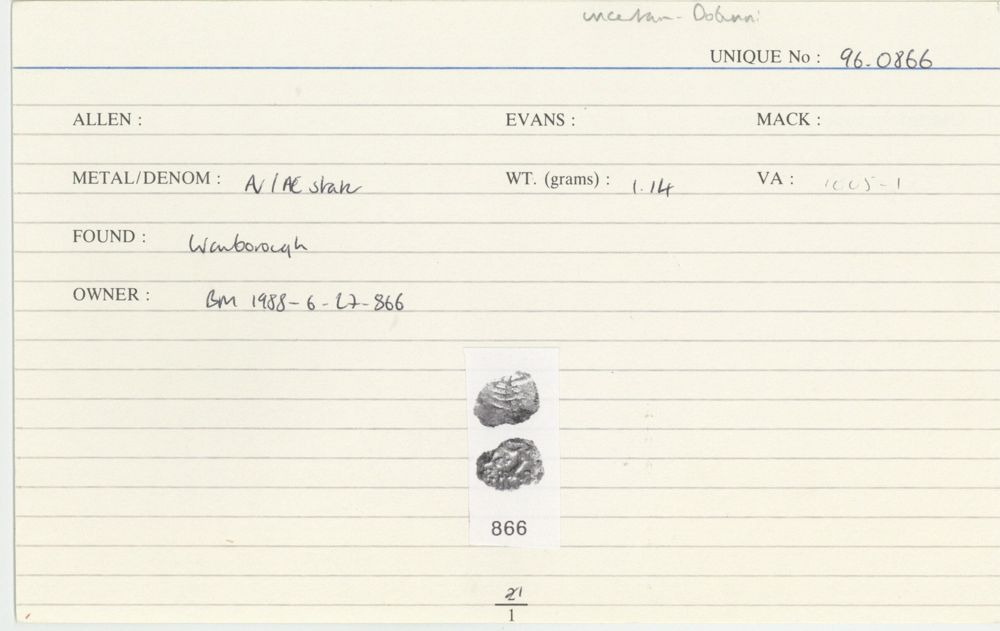 uncertain - Dobunni
UNIQUE No : 96.0866
ALLEN : EVANS : MACK :
METAL/DENOM : AV/AE stater WT. (grams) : 1.14 VA : 1005-1
FOUND : Wanborough
OWNER : BM 1988-6-27-866
866
21
1